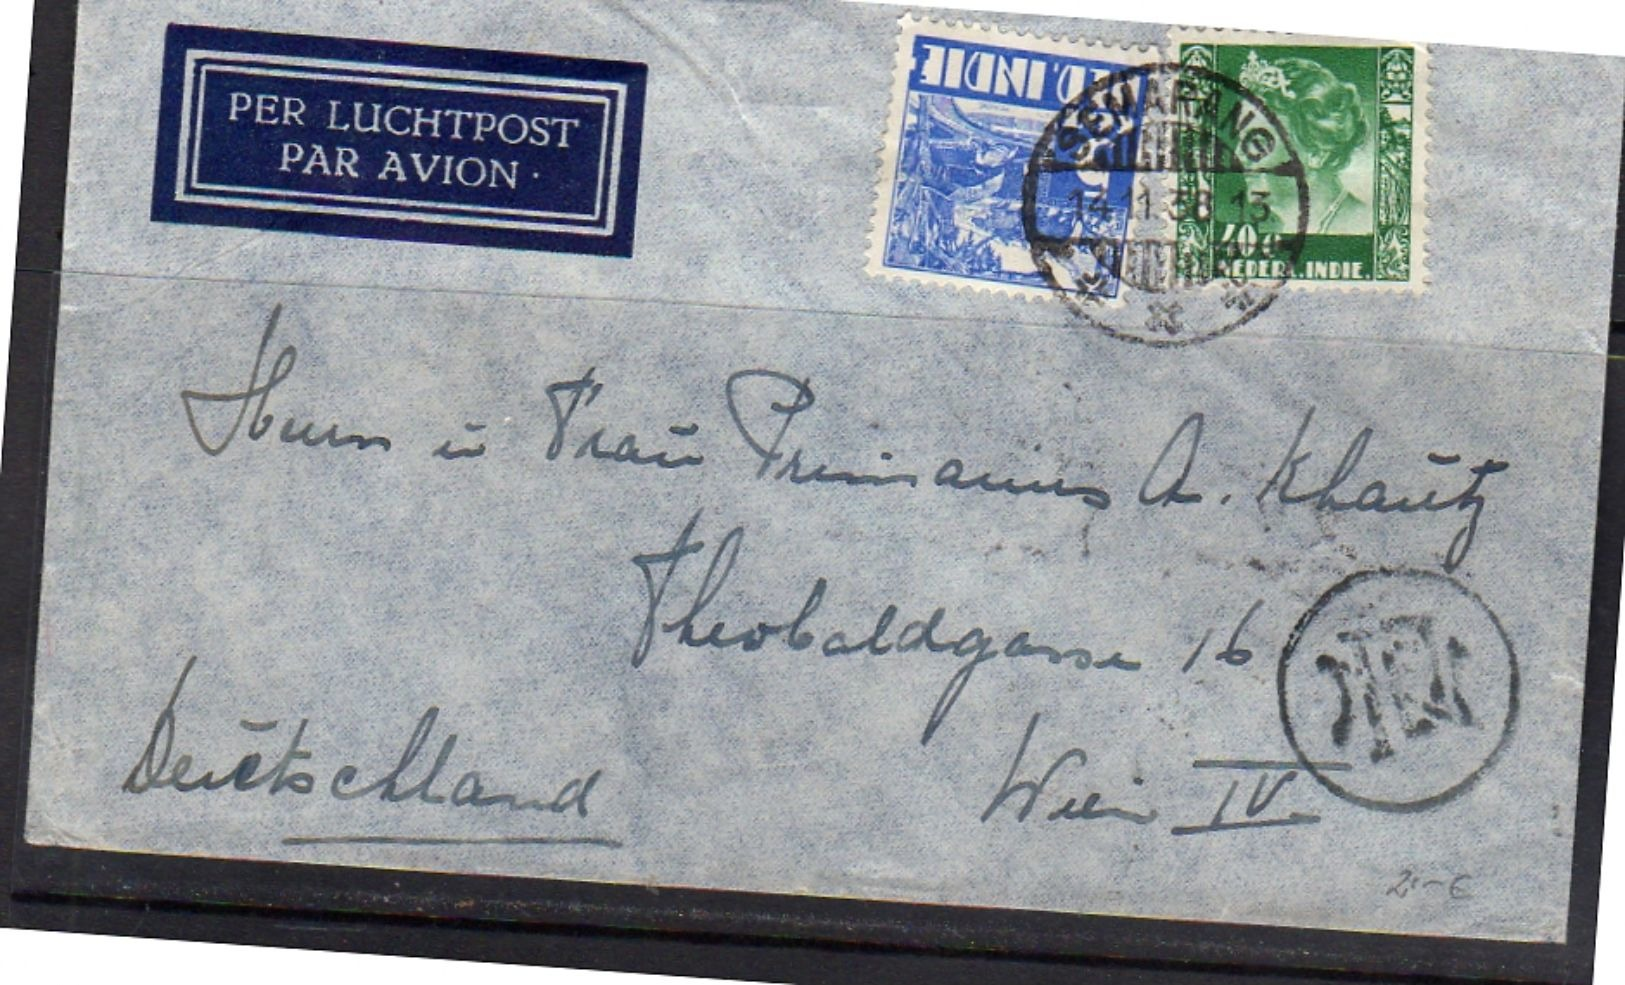 PER LUCHTPOST
PAR AVION
NED. INDIE
SEMARANG
14.11.38.13
40 C
NEDERL. INDIE.
Herrn u Frau Primarius A. Khautz
Theobaldgasse 16
Wien IV.
Deutschland